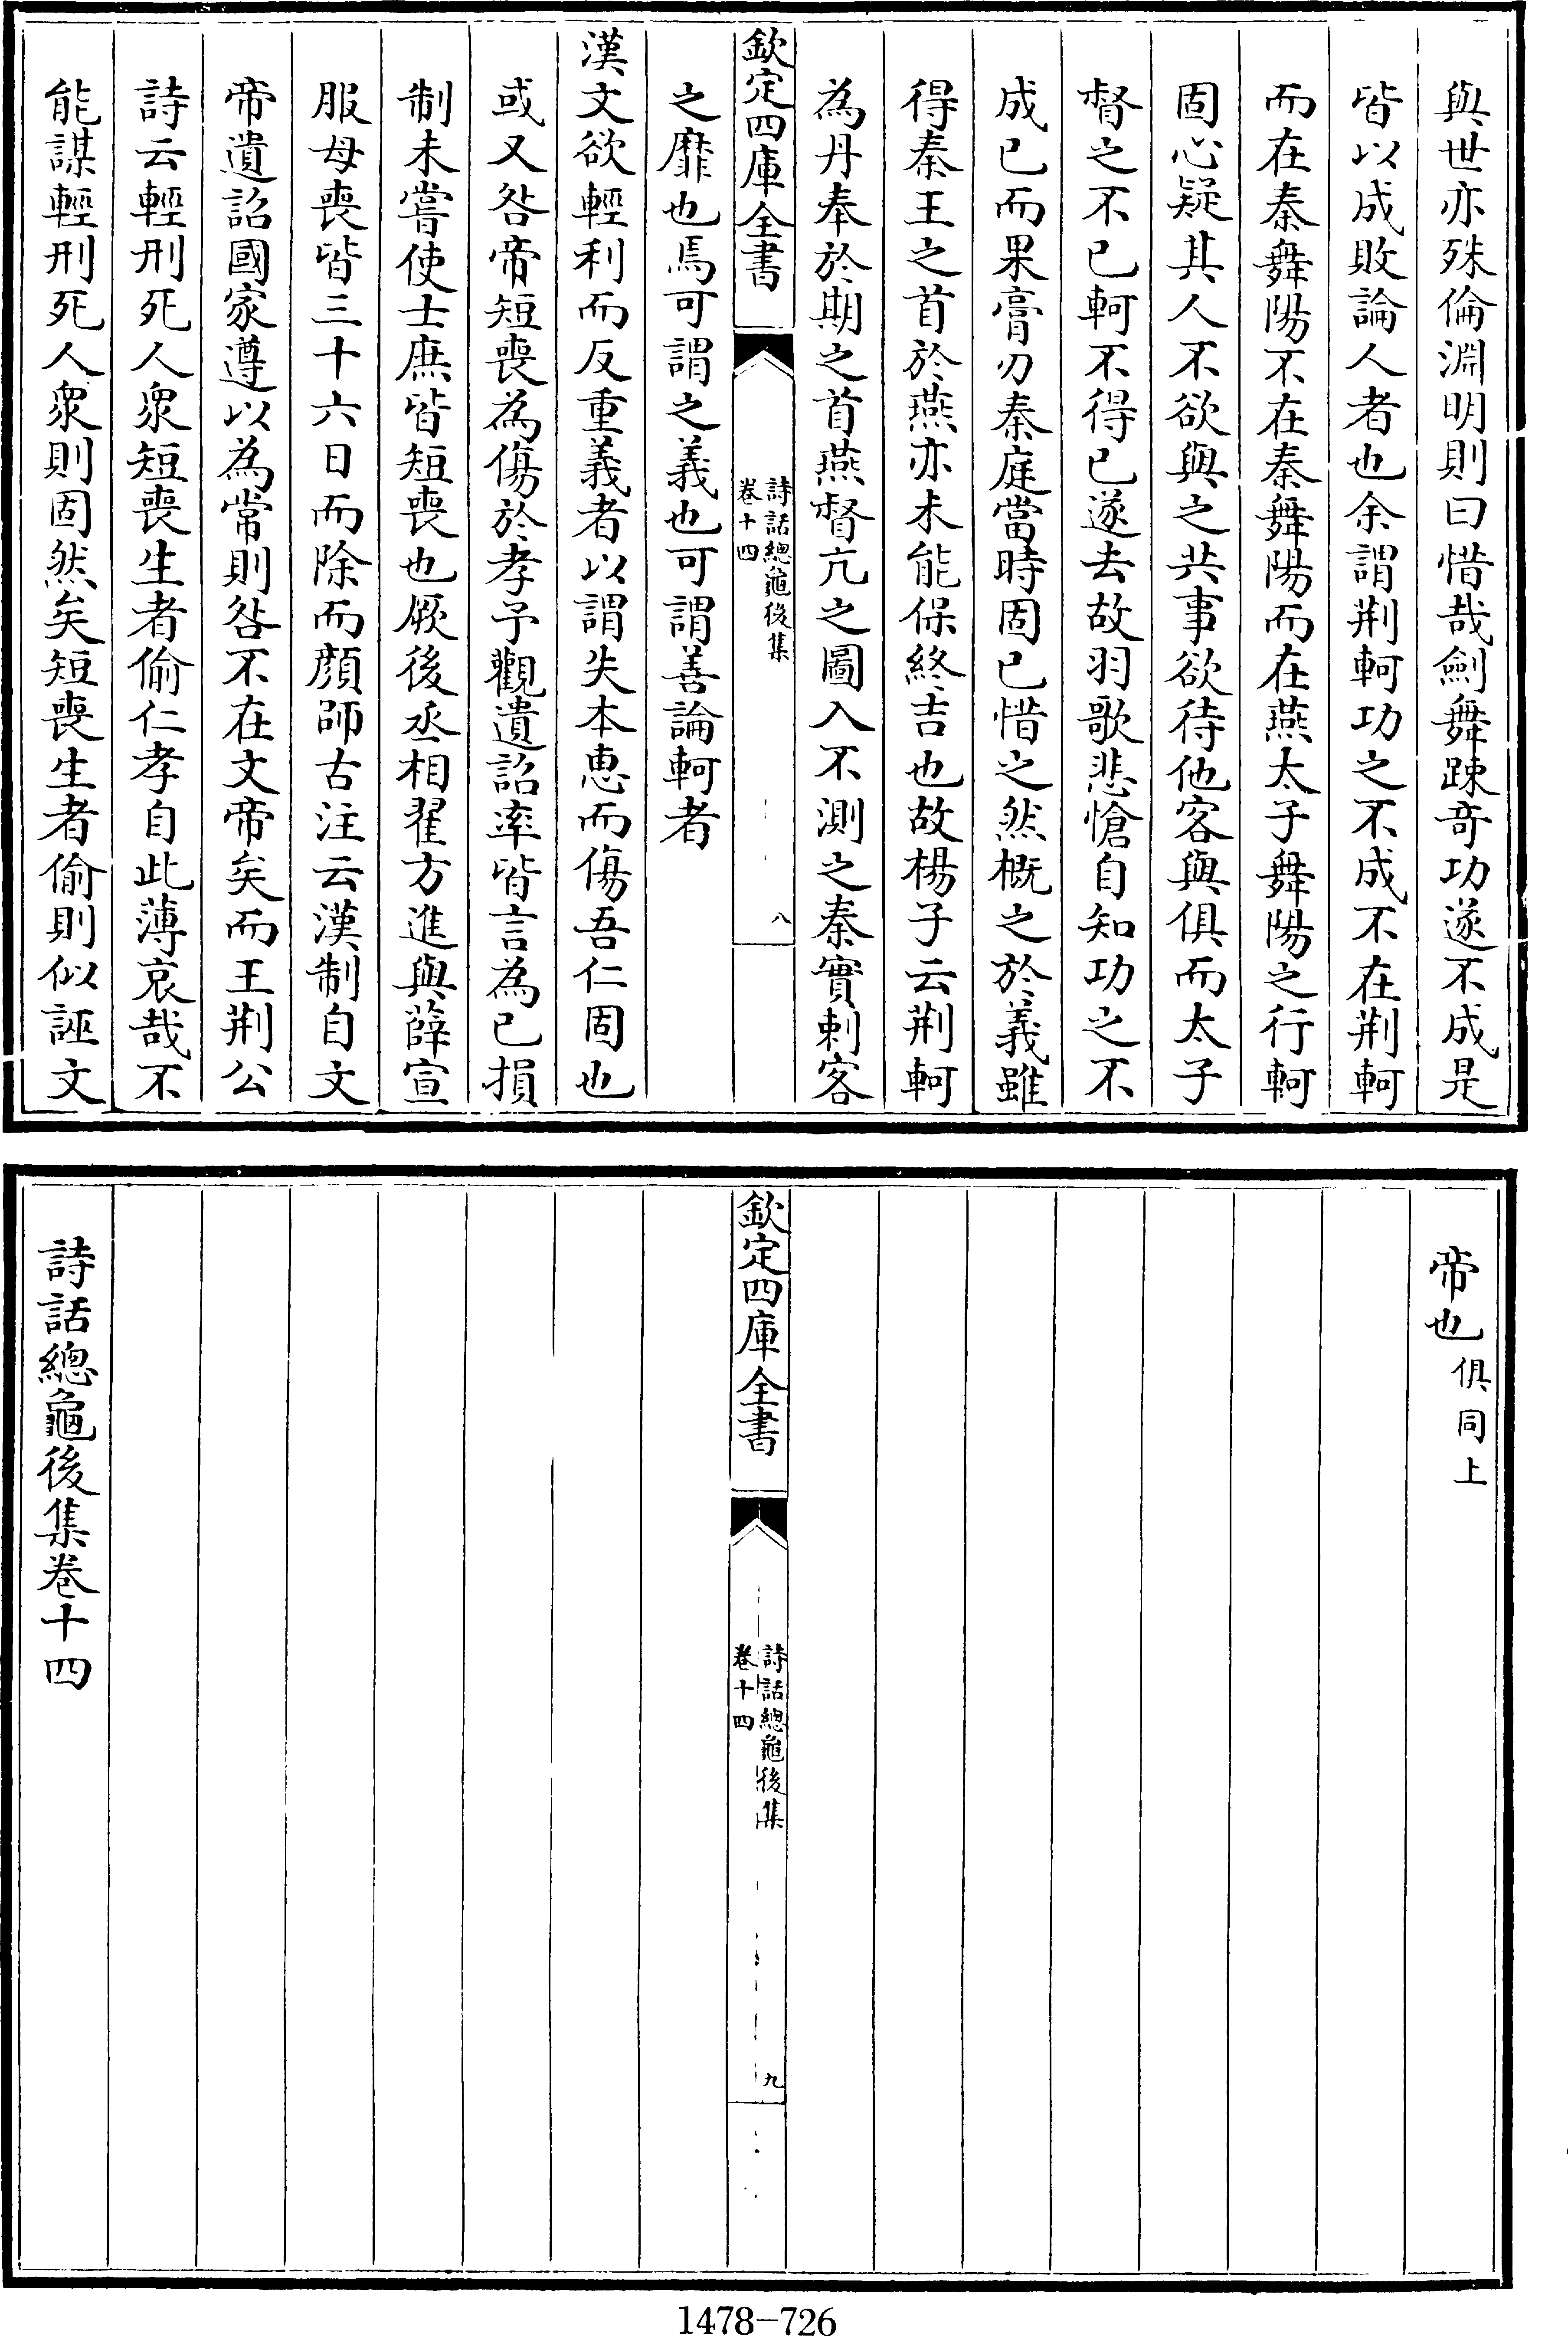 與世亦殊倫淵明則曰惜哉劍舞踈竒功遂不成是
皆以成敗論人者也余謂荆軻功之不成不在荆軻
而在秦舞陽不在秦舞陽而在燕太子舞陽之行軻
固心疑其人不欲與之共事欲待他客與俱而太子
督之不已軻不得已遂去故羽歌悲愴自知功之不
成已而果膏刃秦庭當時固已惜之然概之於義雖
得秦王之首於燕亦未能保終吉也故楊子云荆軻
為丹奉於期之首燕督亢之圖入不測之秦實刺客
欽定四庫全書
詩話總龜後集
卷十四
八
之靡也焉可謂之義也可謂善論軻者
漢文欲輕利而反重義者以謂失本惠而傷吾仁固也
或又咎帝短喪為傷於孝予觀遺詔率皆言為已損
制未嘗使士庶皆短喪也厥後丞相翟方進與薛宣
服母喪皆三十六日而除而顔師古注云漢制自文
帝遺詔國家遵以為常則咎不在文帝矣而王荆公
詩云輕刑死人衆短喪生者偷仁孝自此薄哀哉不
能謀輕刑死人衆則固然矣短喪生者偷則似誣文
帝也俱同上
欽定四庫全書
詩話總龜後集
卷十四
九
詩話總龜後集卷十四
1478-726